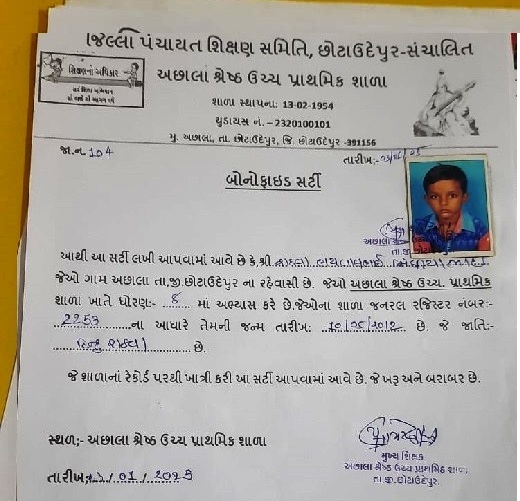 જિલ્લા પંચાયત શિક્ષણ સમિતિ, છોટાઉદેપુર-સંચાલિત
શિક્ષણનો અધિકાર
અછાલા શ્રેષ્ઠ ઉચ્ચ પ્રાથમિક શાળા
શાળા સ્થાપના: 13-02-1954
યુડાયસ નં. -2320100101
મુ. અછાલા, તા. છોટાઉદેપુર, જિ. છોટાઉદેપુર -391156
જા.નં. 104
તારીખ:-
બોનોફાઇડ સર્ટી
આથી આ સર્ટી લખી આપવામાં આવે છે કે, શ્રી
જેઓ ગામ અછાલા તા.જી.છોટાઉદેપુર ના રહેવાસી છે. જેઓ અછાલા શ્રેષ્ઠ ઉચ્ચ. પ્રાથમિક
શાળા ખાતે ધોરણ:- 8 માં અભ્યાસ કરે છે.જેઓના શાળા જનરલ રજિસ્ટર નંબર:-
2253 ના આધારે તેમની જન્મ તારીખ: છે. જે જાતિ:-
છે.
જે શાળાનાં રેકોર્ડ પરથી ખાત્રી કરી આ સર્ટી આપવામાં આવે છે. જે ખરૂ અને બરાબર છે.
સ્થળ;- અછાલા શ્રેષ્ઠ ઉચ્ચ પ્રાથમિક શાળા
મુખ્ય શિક્ષક
અછાલા શ્રેષ્ઠ ઉચ્ચ પ્રાથમિક શાળા
તા.જી.છોટાઉદેપુર
તારીખ: